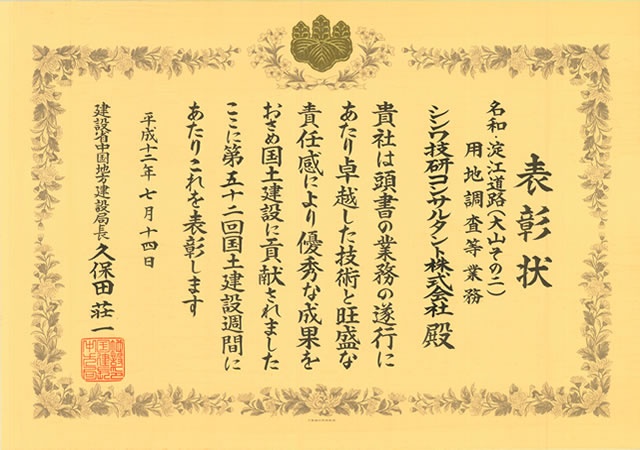 表彰状
名和・淀江道路（大山その二）
用地調査等業務
シンワ技研コンサルタント株式会社 殿
貴社は頭書の業務の遂行に
あたり卓越した技術と旺盛な
責任感により優秀な成果を
おさめ国土建設に貢献されました
ここに第五十二回国土建設週間に
あたりこれを表彰します
平成十二年七月十四日
建設省中国地方建設局長 久保田 荘一